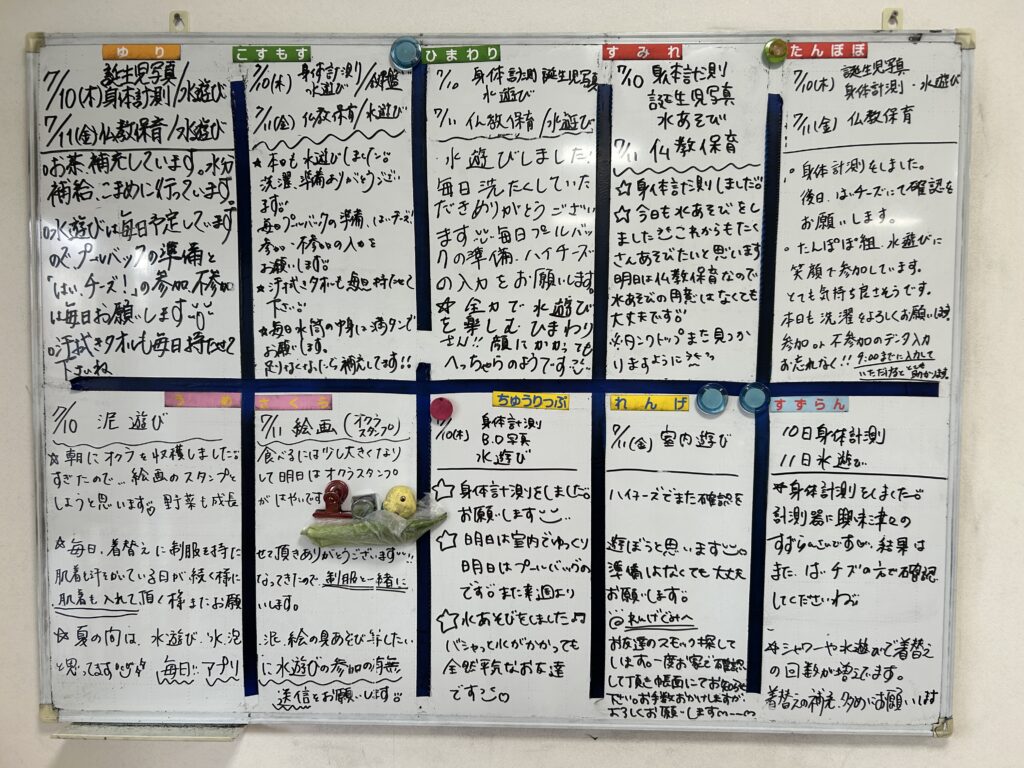 ゆり
7/10(木) 誕生児写真 身体計測/水遊び
7/11(金) 仏教保育/水遊び
○お茶、補充しています。水分
補給、こまめに行っています。
○水遊びは毎日予定しています
ので、プールバックの準備と
「はい、チーズ！」の参加、不参加
は毎日お願いします
○汗拭きタオルも毎日持たせて
下さいね
こすもす
7/10(木) 身体計測/ 水遊び
7/11(金) 仏教保育/水遊び
★本日も水遊びしました。
洗濯、準備ありがとうござい
ます。
毎日プールバックの準備、はいチーズ!
参加・不参加の入力を
お願いします。
★汗拭きタオルも毎日持たせて
下さい。
★毎日水筒の中身は満タンで
お願いします。
足りなくなったら補充してます!!
ひまわり
7/10 身体計測 誕生児写真
水遊び
7/11 仏教保育/水遊び
水遊びしました!
毎日洗たくしていた
だきありがとうござい
ます 毎日プールバッ
クの準備、ハイチーズ
の入力をお願いします。
☆全力で水遊び
を楽しむひまわり
さん!! 顔にかかっても
へっちゃらのようです
すみれ
7/10 身体計測
誕生児写真
水あそび
7/11 仏教保育
☆身体計測しました
☆今日も水あそびをし
ました これからもたく
さんあそびたいと思います
明日は仏教保育なので
水あそびの用意はなくても
大丈夫です
※タンクトップまた見つか
りますように
たんぽぽ
7/10(木) 誕生児写真
身体計測・水遊び
7/11(金) 仏教保育
・身体計測をしました。
後日、はいチーズにて確認を
お願いします。
・たんぽぽ組、水遊びに
笑顔で参加しています。
とても気持ち良さそうです。
本日も洗濯をよろしくお願いします
参加or不参加のデータ入力
お忘れなく!! 9:00までに入力して
いただけるととても助かります
うめ
さくら
7/10 泥遊び
7/11 絵画(オクラスタンプ)
☆朝にオクラを収穫しました 食べるには少し大きくなり
すぎたので…絵画のスタンプとして明日はオクラスタンプ
しようと思います 野菜も成長がはやいです
☆毎日、着替えに制服を持たせて頂きありがとうございます
肌着も汗をかいている日が続く様になってきたので、制服と一緒に
肌着も入れて頂く様またお願いします。
☆夏の間は、水遊び、水泥、泥絵の具あそび等したい
と思ってます 毎日、アプリに水遊びの参加の有無
送信をお願いします
ちゅうりっぷ
7/10(木) 身体計測
B.D写真
水遊び
れんげ
7/11(金) 室内遊び
☆身体計測をしました ハイチーズでまた確認を
お願いします
☆明日は室内でゆっくり遊ぼうと思います
明日はプールバックの準備はなくても大丈夫
です また来週よりお願いします
☆水あそびをしました♪
バシャっと水がかかっても
全然平気なお友達
です
@れんげぐみへ
お友達のスモック探して
います。一度お家で確認
して頂き帳面にてお知らせ
下さい。お手数おかけしますが、
よろしくお願いします
すずらん
10日身体計測
11日水遊び
☆身体計測をしました
計測器に興味津々の
すずらんさんです 結果は
また、はいチーズの方で確認
してくださいね
☆シャワーや水遊びで着替え
の回数が増えてます。
着替えの補充、多めにお願いします